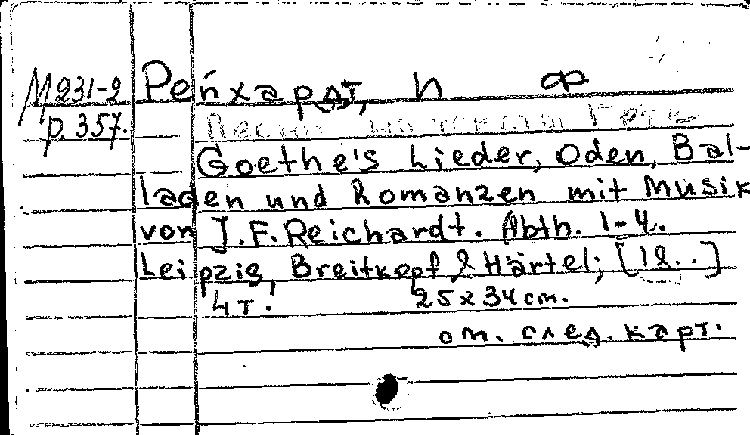 М231-2 Рейхардт, И Ф
р. 357.
Goethe's Lieder, Oden, Bal-
laden und Romanzen mit Musik
von J.F. Reichardt. Abth. 1-4.
Leipzig, Breitkopf & Härtel; [18..]
4 т. 25x34 cm.
см. след. карт.